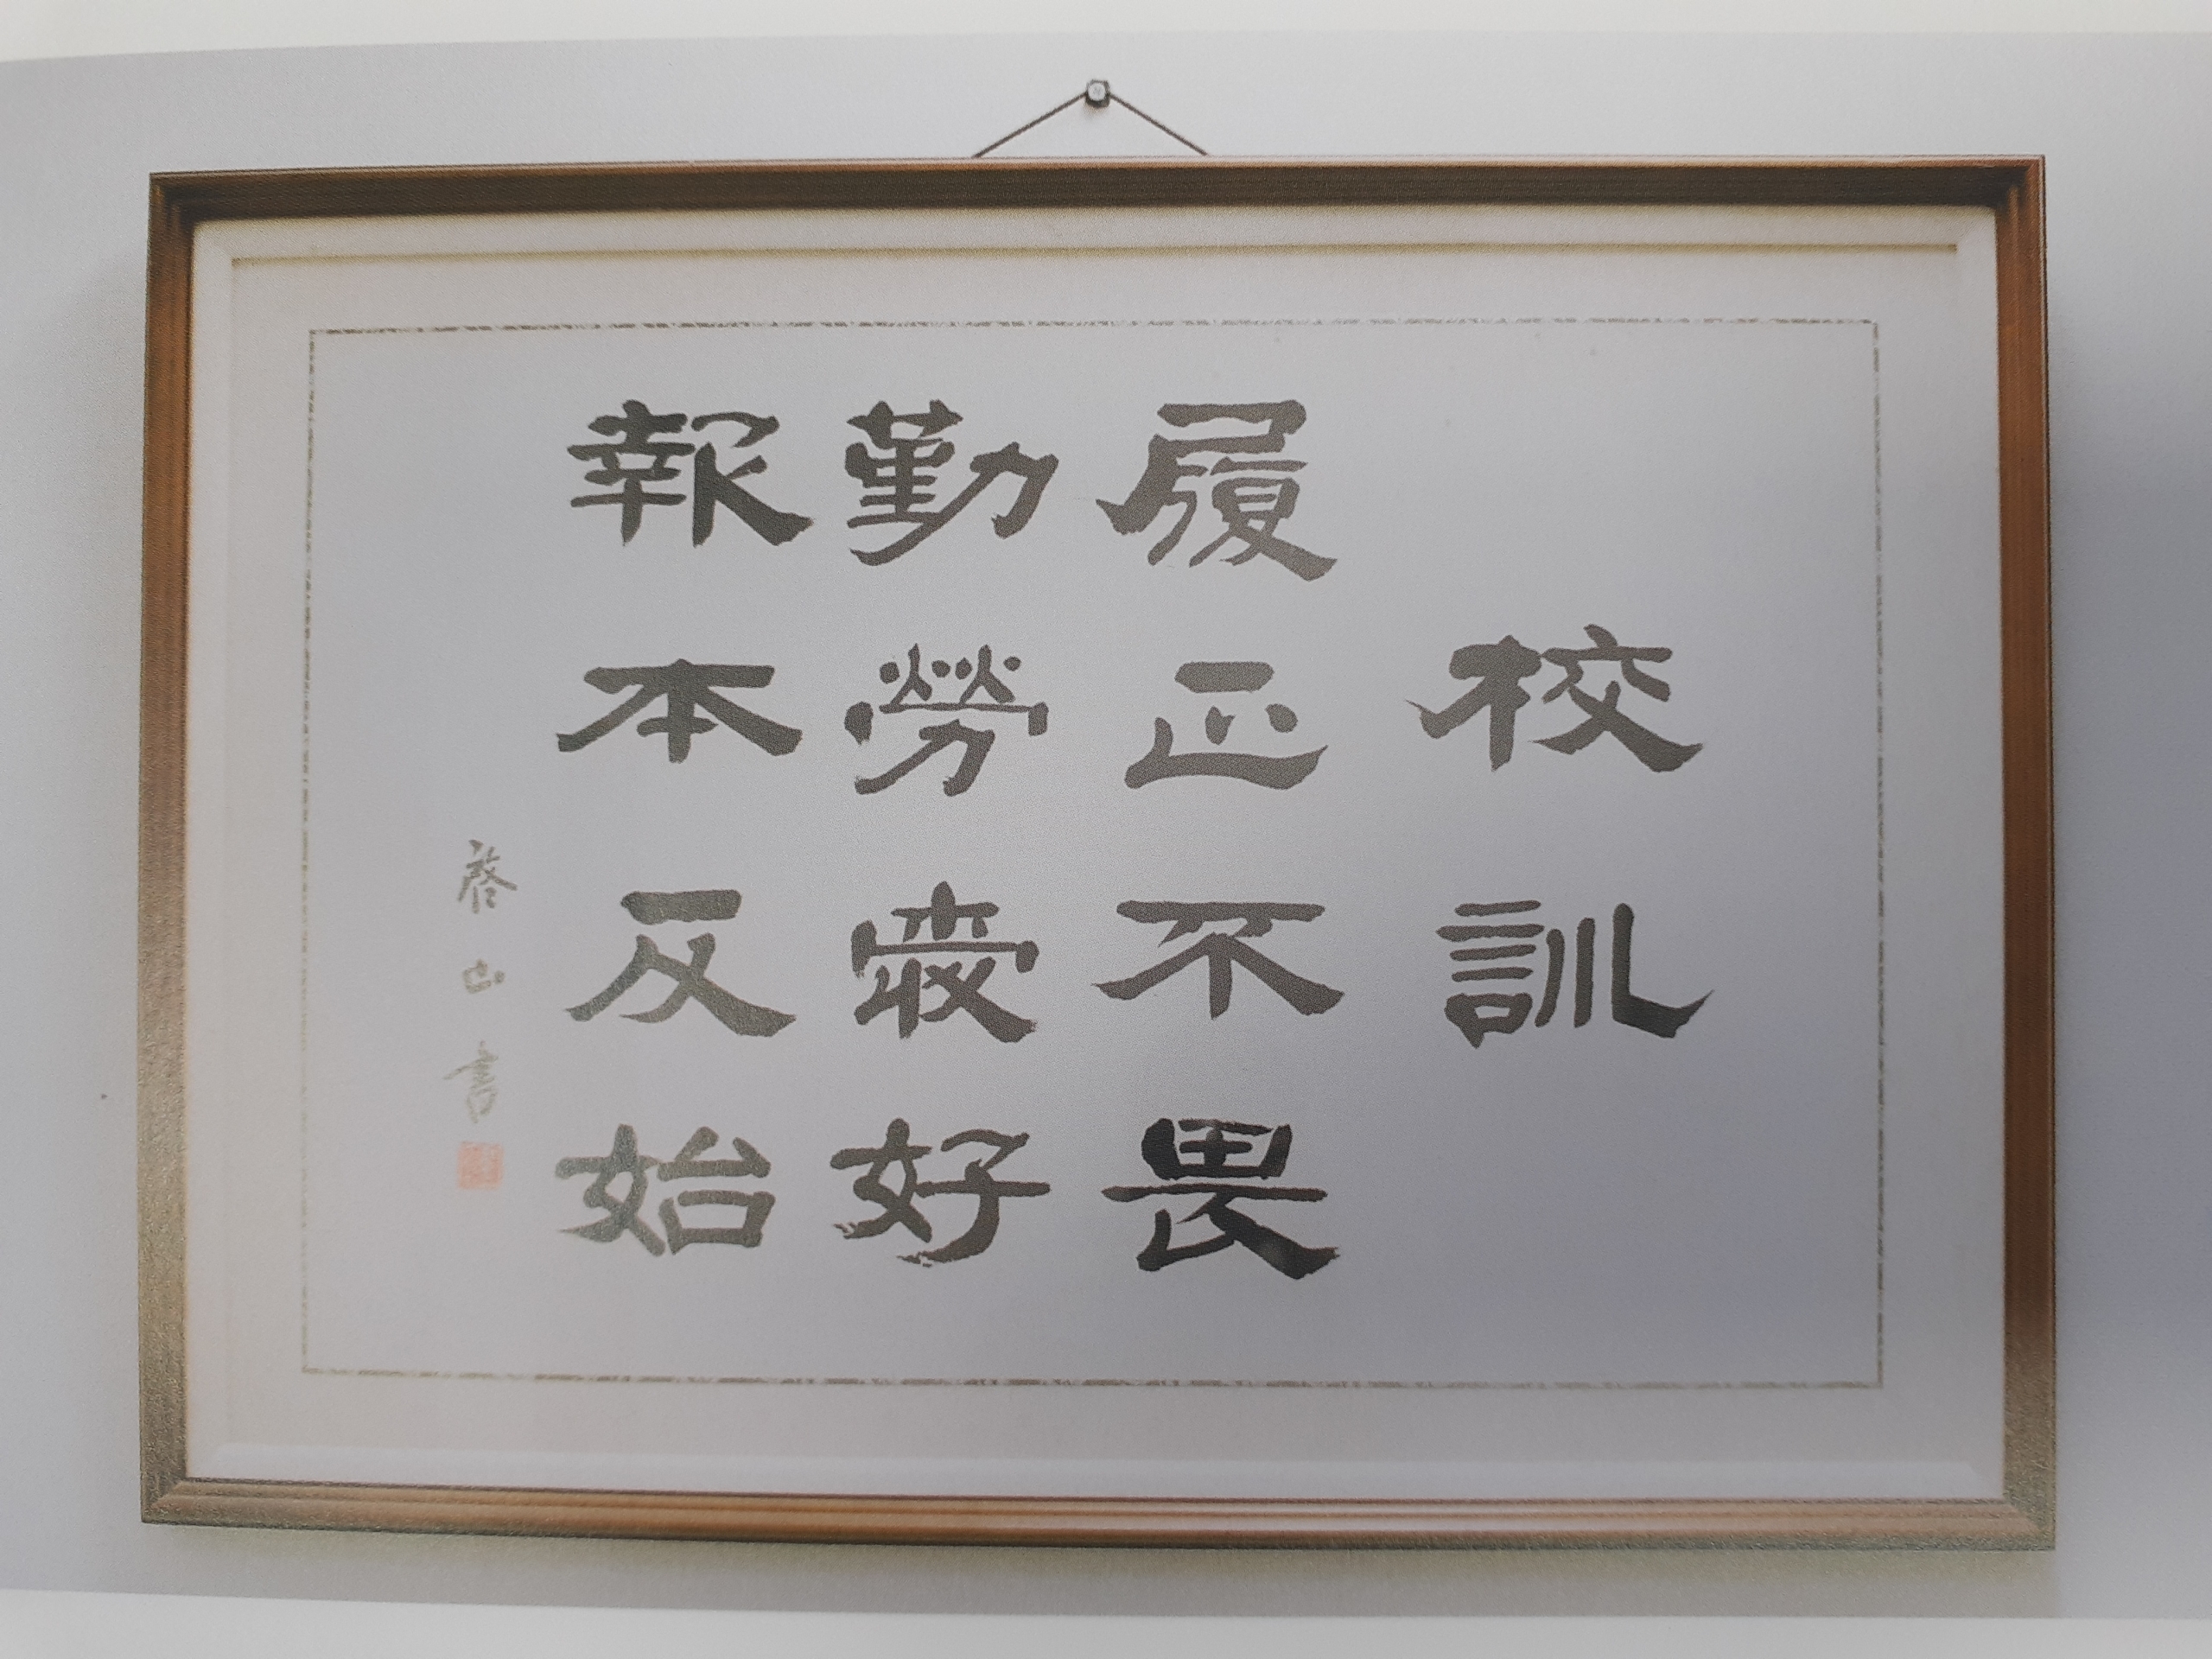 校訓
履正不畏
勤勞愛好
報本反始
山書